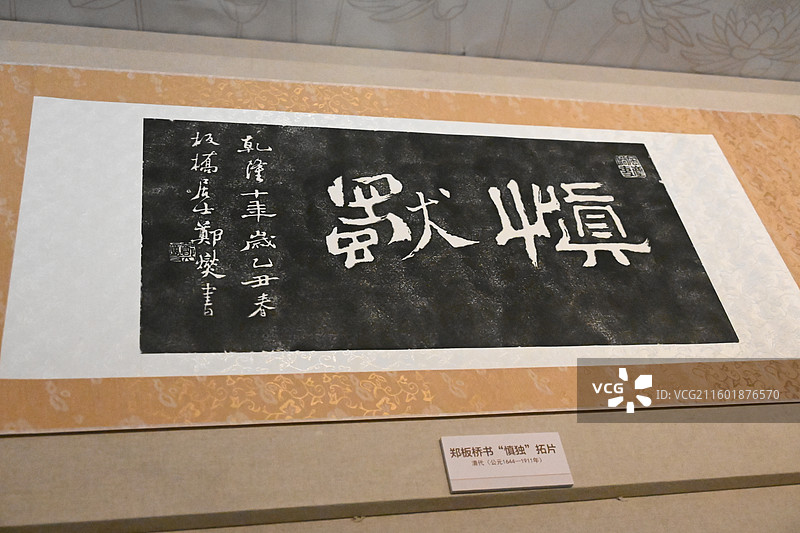 慎獨
乾隆十年歲乙丑春
板橋居士鄭燮書
郑板桥书“慎独”拓片
清代（公元1644—1911年）
VCG
ID:VCG211601876570